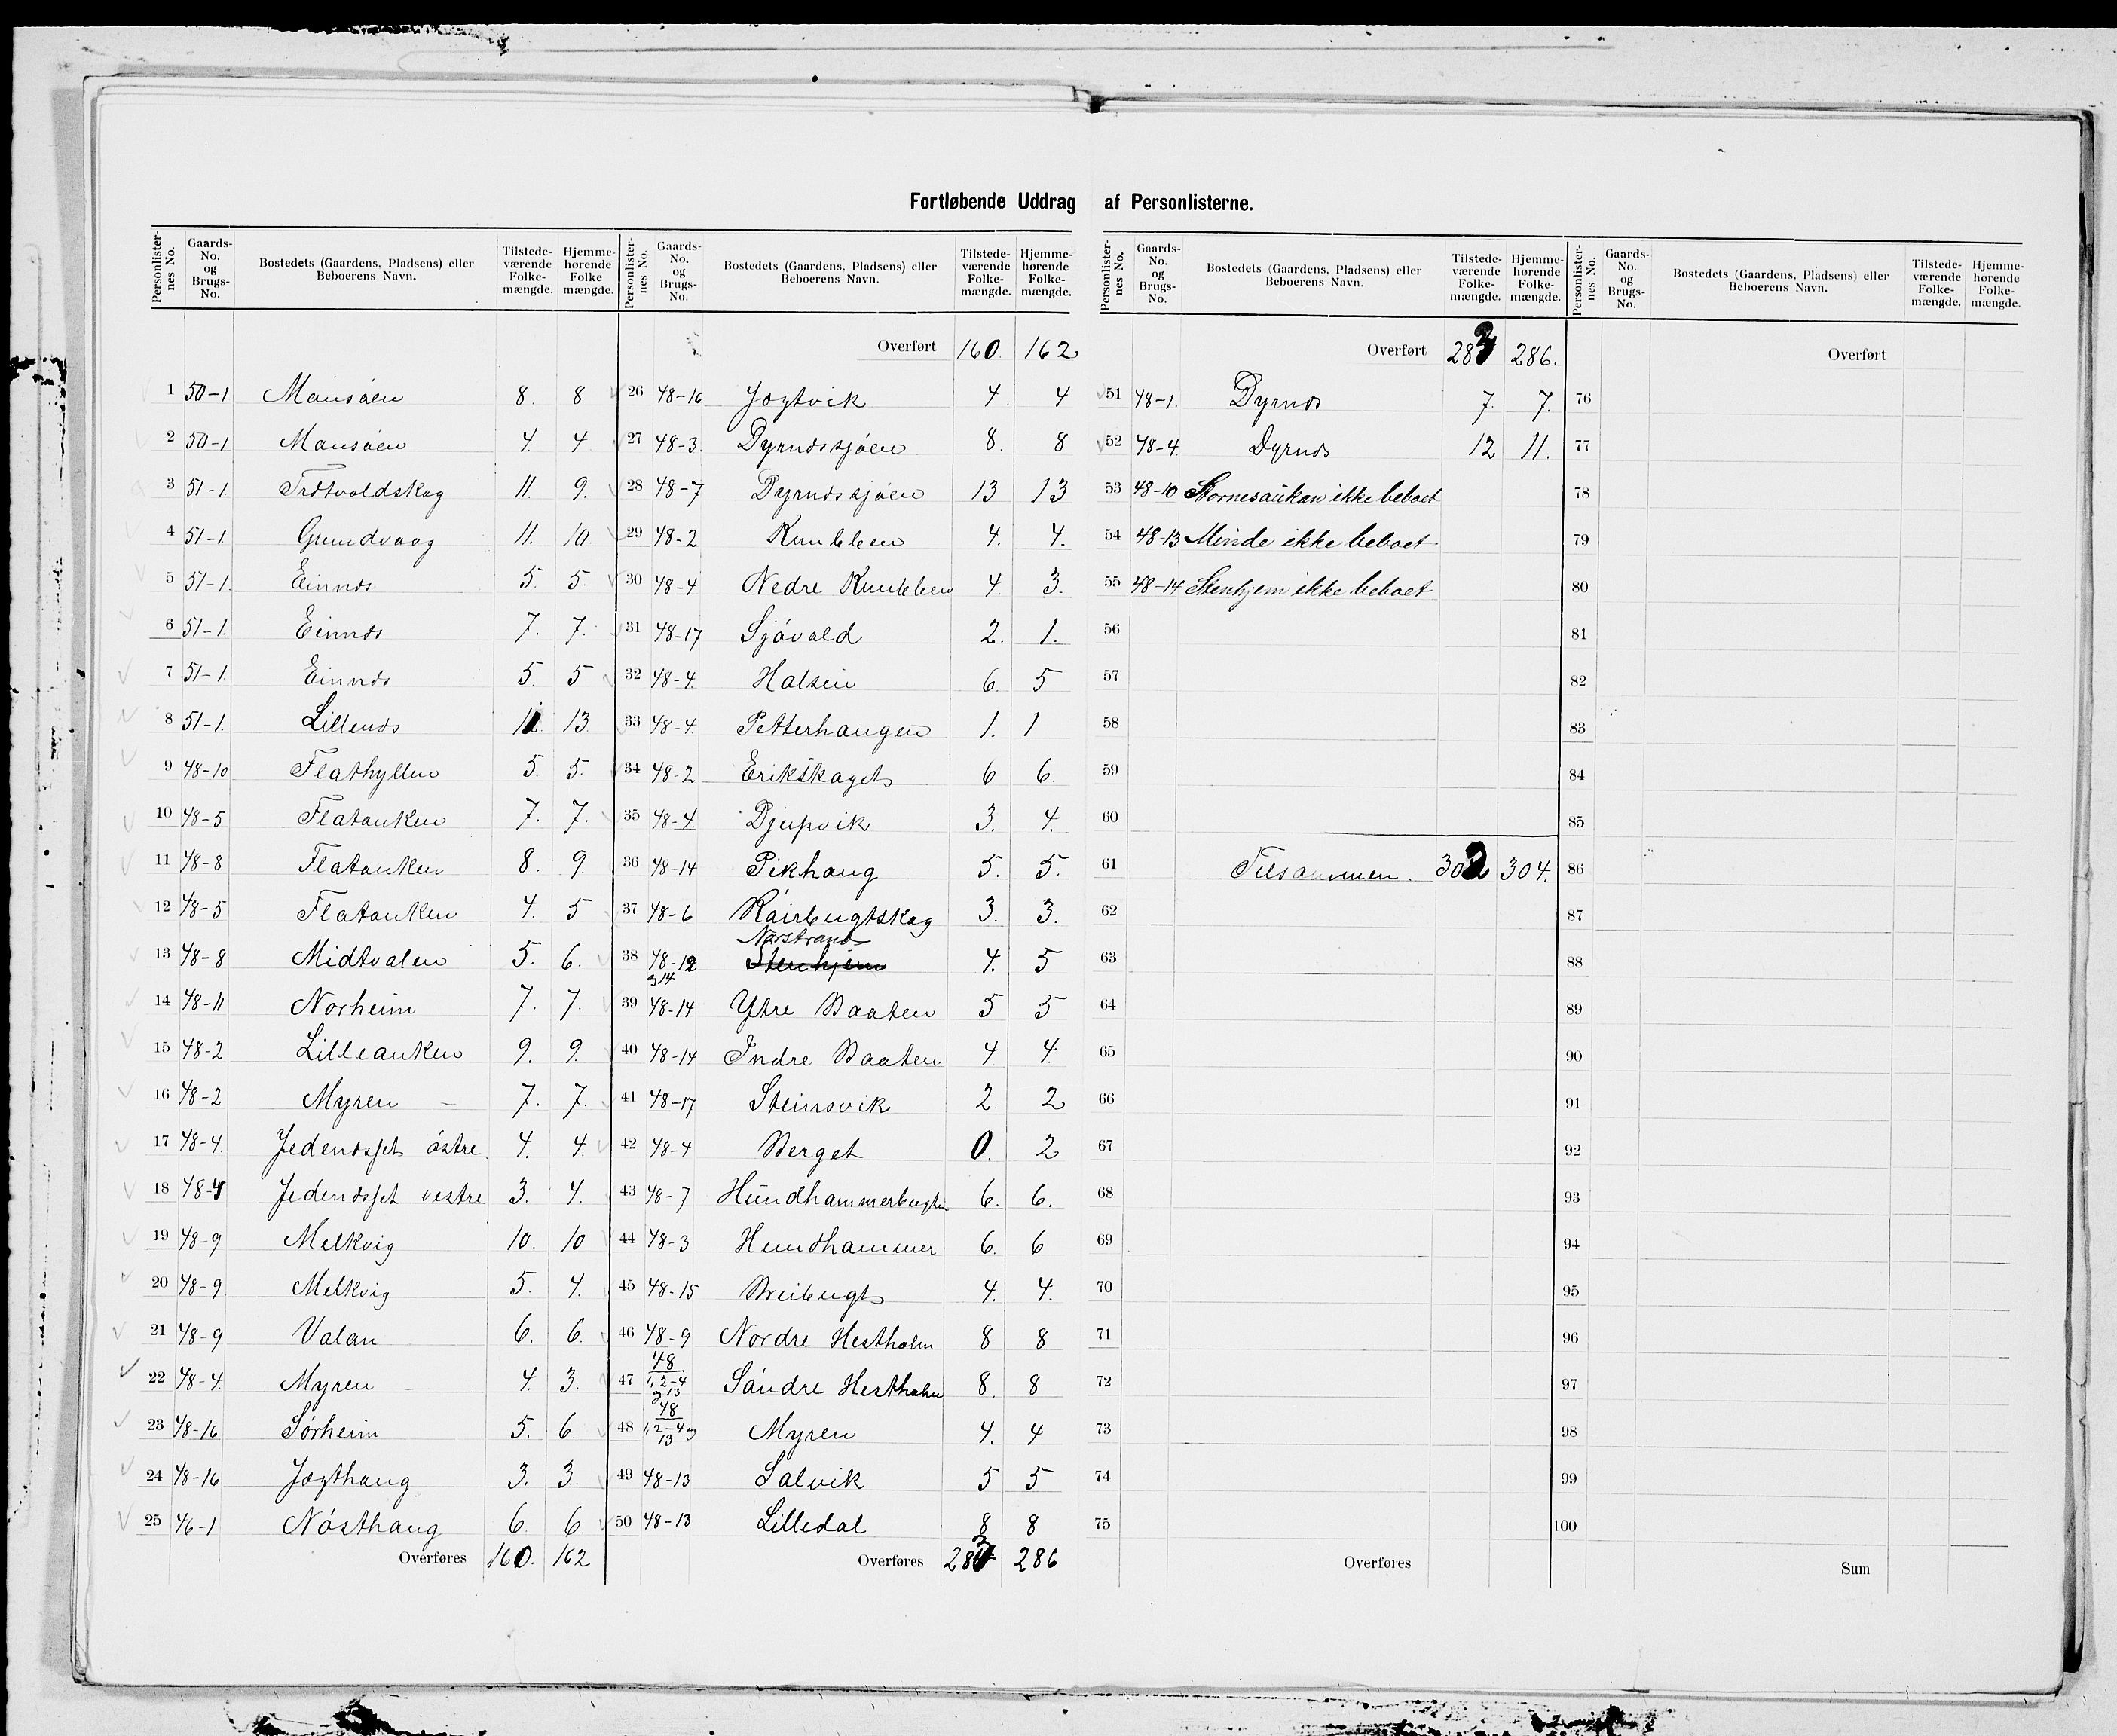 Fortløbende Uddrag af Personlisterne.
Personlisternes No. Gaards-No. og Brugs-No. Bostedets (Gaardens, Pladsens) eller Beboerens Navn. Tilstedeværende Folkemængde. Hjemmehørende Folkemængde.
1 50-1 Mausøen 8. 8
2 50-1 Mausøen 4. 4
3 51-1. Trdtvoldskag 11. 9.
4 51-1. Grundvaag 11. 10.
5 51-1. Einnds 5. 5.
6 51-1. Einnds 7. 7.
7 51-1. Einnds 5. 5
8 51-1. Lillends 13.
9 48-10 Flathyllen 5. 5.
10 48-5 Flatauken 7. 7.
11 48-8 Flatauken 8. 9.
12 48-5 Flatauken 4. 5
13 48-8 Midtvalen 5. 6.
14 48-11 Norheim 7. 7.
15 48-2 Lilleauken 9. 9.
16 48-2 Myren 7. 7.
17 48-4. østre 4. 4.
18 48-4 vestre 3. 4.
19 48-9 Melkvig 10. 10
20 48-9 Melkvig 5. 4.
21 48-9 Valan 6. 6.
22 48-4. Myren 4. 3.
23 48-16 Sørheim 5. 6
24 48-16 Jogthaug 3. 3.
25 46-1 Nósthaug 6. 6.
Overføres 160. 162
Personlisternes No. Gaards-No. og Brugs-No. Bostedets (Gaardens, Pladsens) eller Beboerens Navn. Tilstedeværende Folkemængde. Hjemmehørende Folkemængde.
Overført 160. 162
26 48-16 Jogtvik 4. 4
27 48-3. Dyrndssjøen 8. 8
28 48-7 Dyrndssjøen 13 13
29 48-2 Kunubben 4. 4.
30 48-4 Nedre Kunubben 4. 3.
31 48-17 Sjóvold 2. 1.
32 48-4. Halsen 6. 5
33 48-4. Petterhaugen 1. 1
34 48-2 Erikskaget 6 6.
35 48-4 Djupvik 3. 4.
36 48-14 Pikhaug 5. 5.
37 48-6 3. 3.
Norstrand
38 48-12 Stenhjem 4. 5
g 14
39 48-14 Ytre Baaten 5 5
40 48-14 Indre Baaten 4 4.
41 48-17 Steinsvik 2. 2
42 48-4 Berget 0. 2
43 48-7 Hundhammerbugten 6. 6.
44 48-3 Hundhammer 6. 6
45 48-15 Breibugt 4. 4.
46 48-9 Nordre Hestholm 8 8
47 48 1, 2-4 g 13 Søndre Hestholm 8. 8
48 48 1, 2-4 g 13 Myren 4. 4
49 48-13 Salvik 5 5
50 48-13 Lilledal 8 8
Overføres 283 286
Personlisternes No. Gaards-No. og Brugs-No. Bostedets (Gaardens, Pladsens) eller Beboerens Navn. Tilstedeværende Folkemængde. Hjemmehørende Folkemængde.
Overført 283 286.
51 48-1. Dyrnds 7. 7.
52 48-4 Dyrnds 12 11.
53 48-10 Stornesaukan ikke beboet
54 48-13 Minde ikke beboet
55 48-14 Stenhjem ikke beboet
56
57
58
59
60
61 Tilsammen. 302 304.
62
63
64
65
66
67
68
69
70
71
72
73
74
75
Overføres
Personlisternes No. Gaards-No. og Brugs-No. Bostedets (Gaardens, Pladsens) eller Beboerens Navn. Tilstedeværende Folkemængde. Hjemmehørende Folkemængde.
Overført
76
77
78
79
80
81
82
83
84
85
86
87
88
89
90
91
92
93
94
95
96
97
98
99
100
Sum